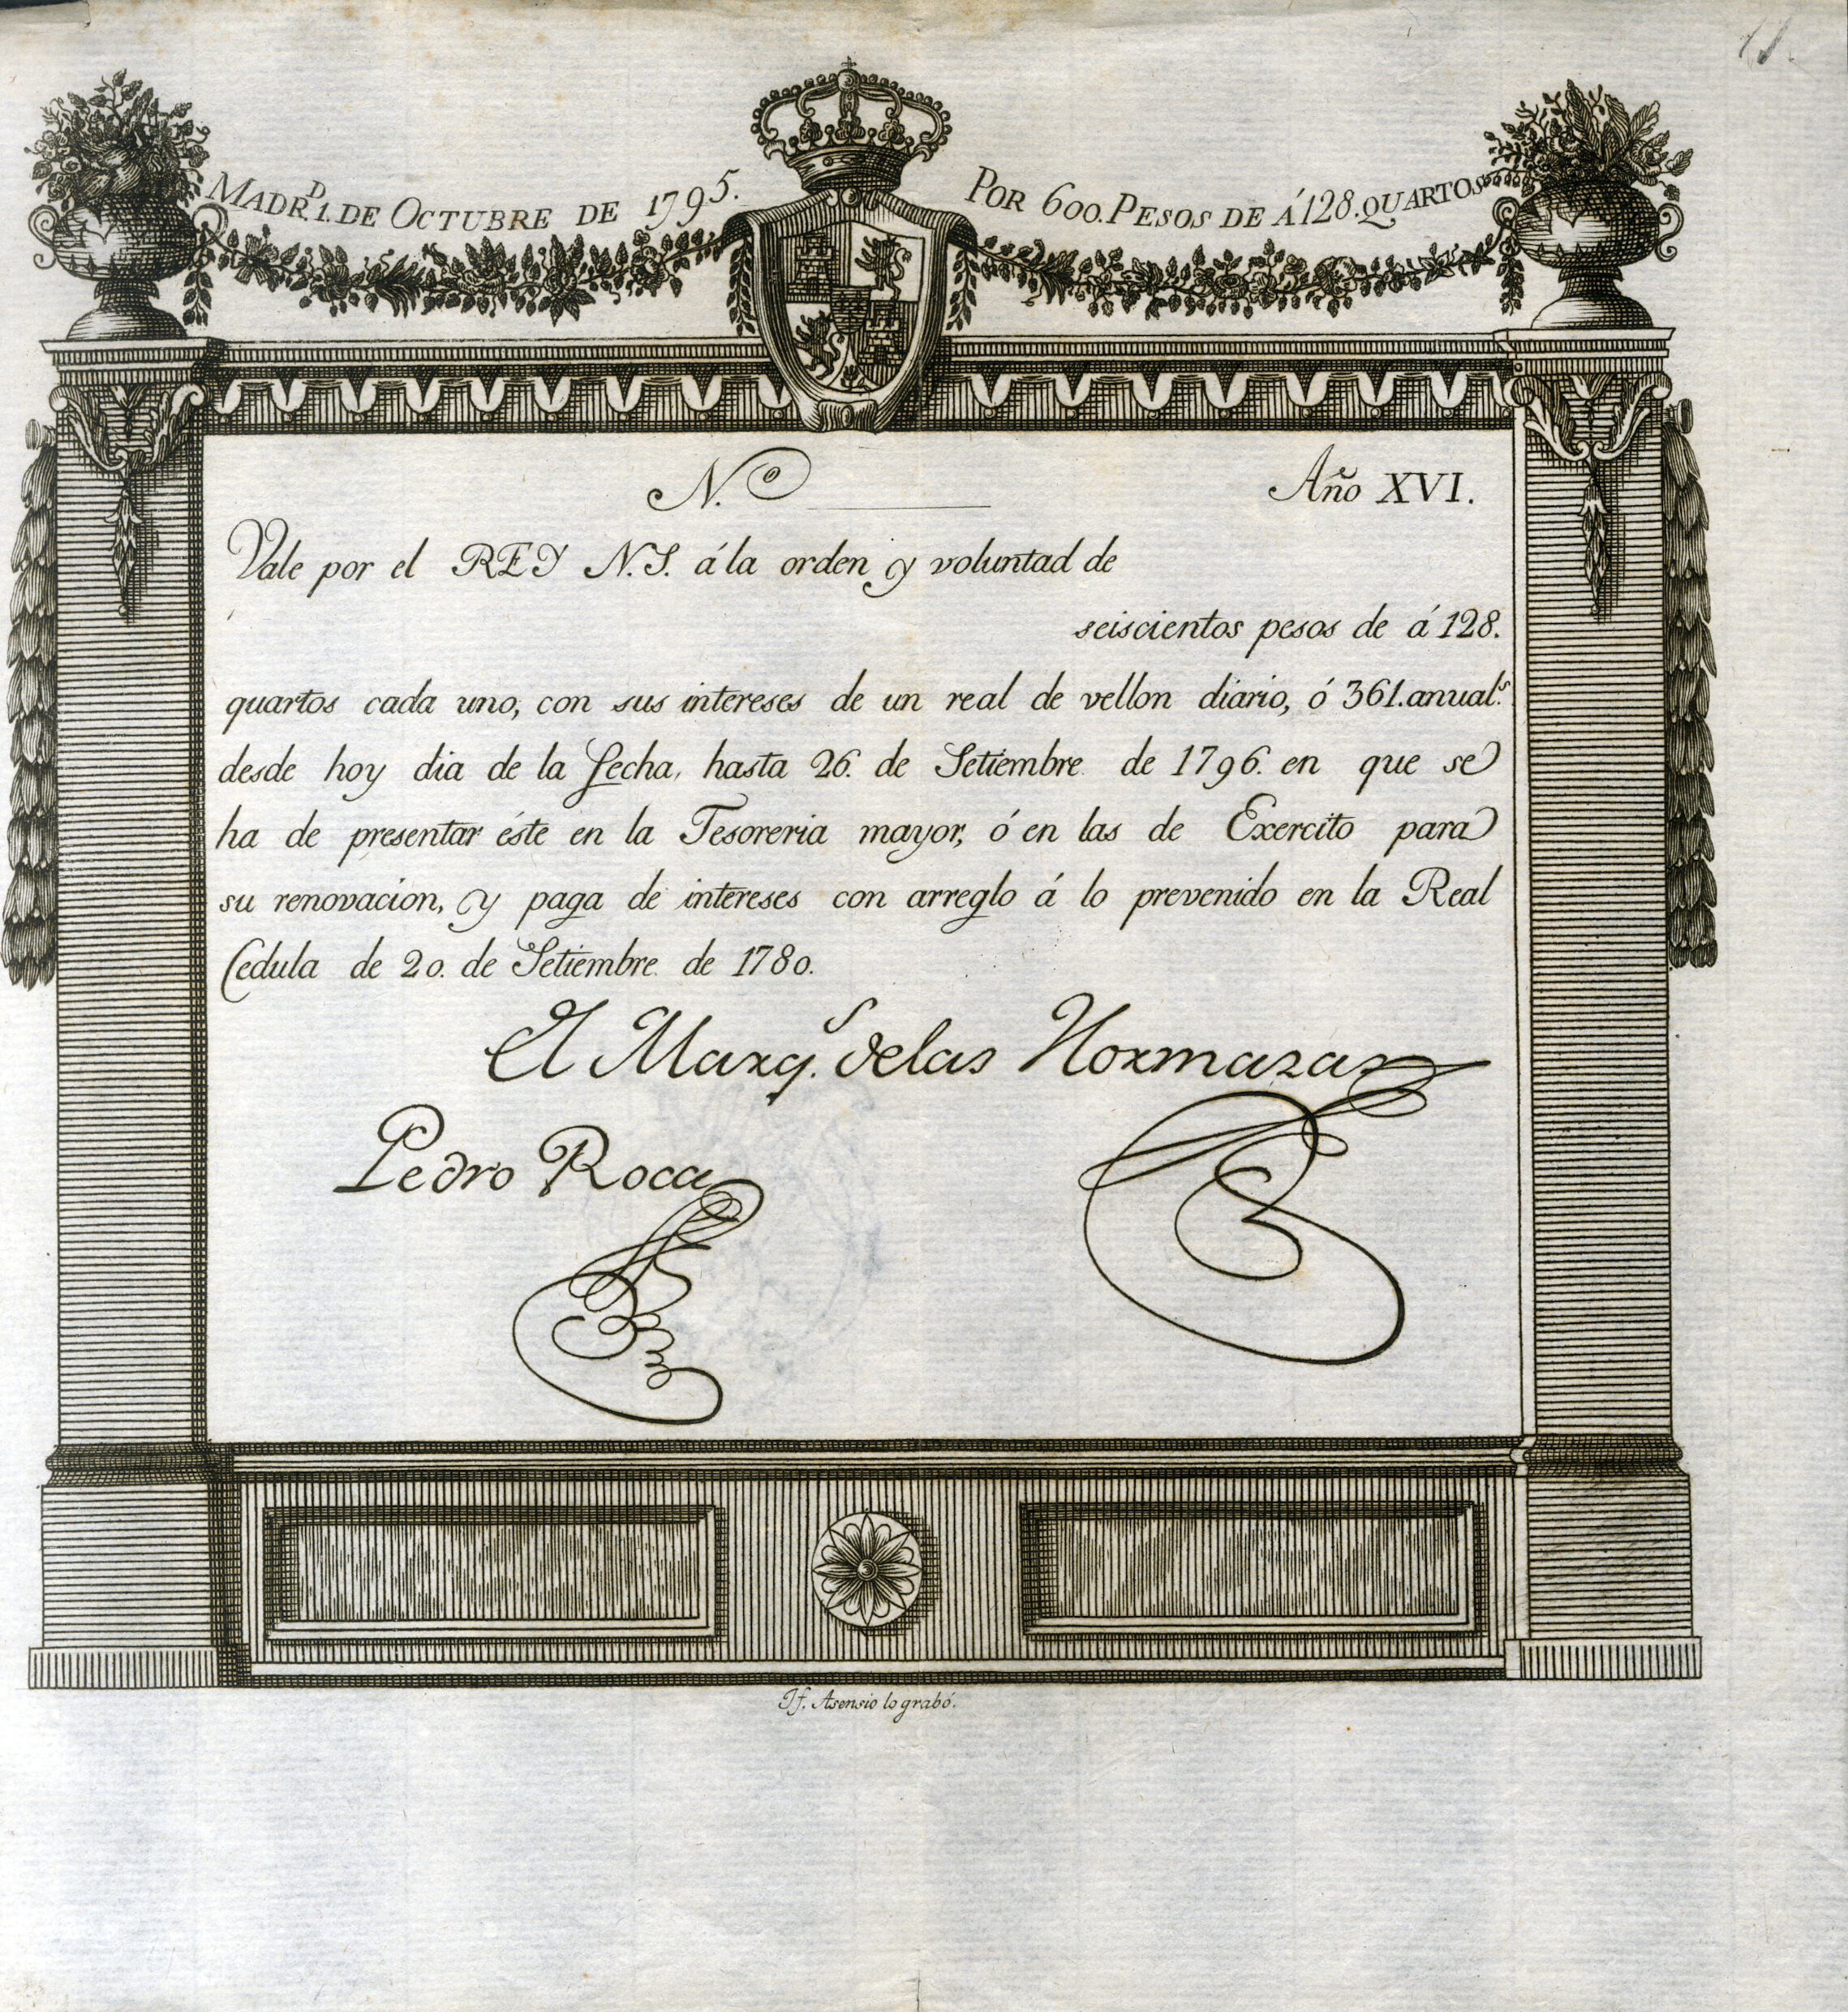 MADR.D 1. DE OCTUBRE DE 1795.
POR 600. PESOS DE Á 128. QUARTOS
N.º
Año XVI.
Vale por el REY N.S. á la orden y voluntad de
seiscientos pesos de á 128.
quartos cada uno, con sus intereses de un real de vellon diario, ó 361. anual.s
desde hoy dia de la fecha, hasta 26. de Setiembre de 1796. en que se
ha de presentar éste en la Tesoreria mayor, ó en las de Exercito para
su renovacion, y paga de intereses con arreglo á lo prevenido en la Real
Cedula de 20. de Setiembre de 1780.
El Marq.s de las Hormazas
Pedro Roca
Jf. Asensio lo grabó.